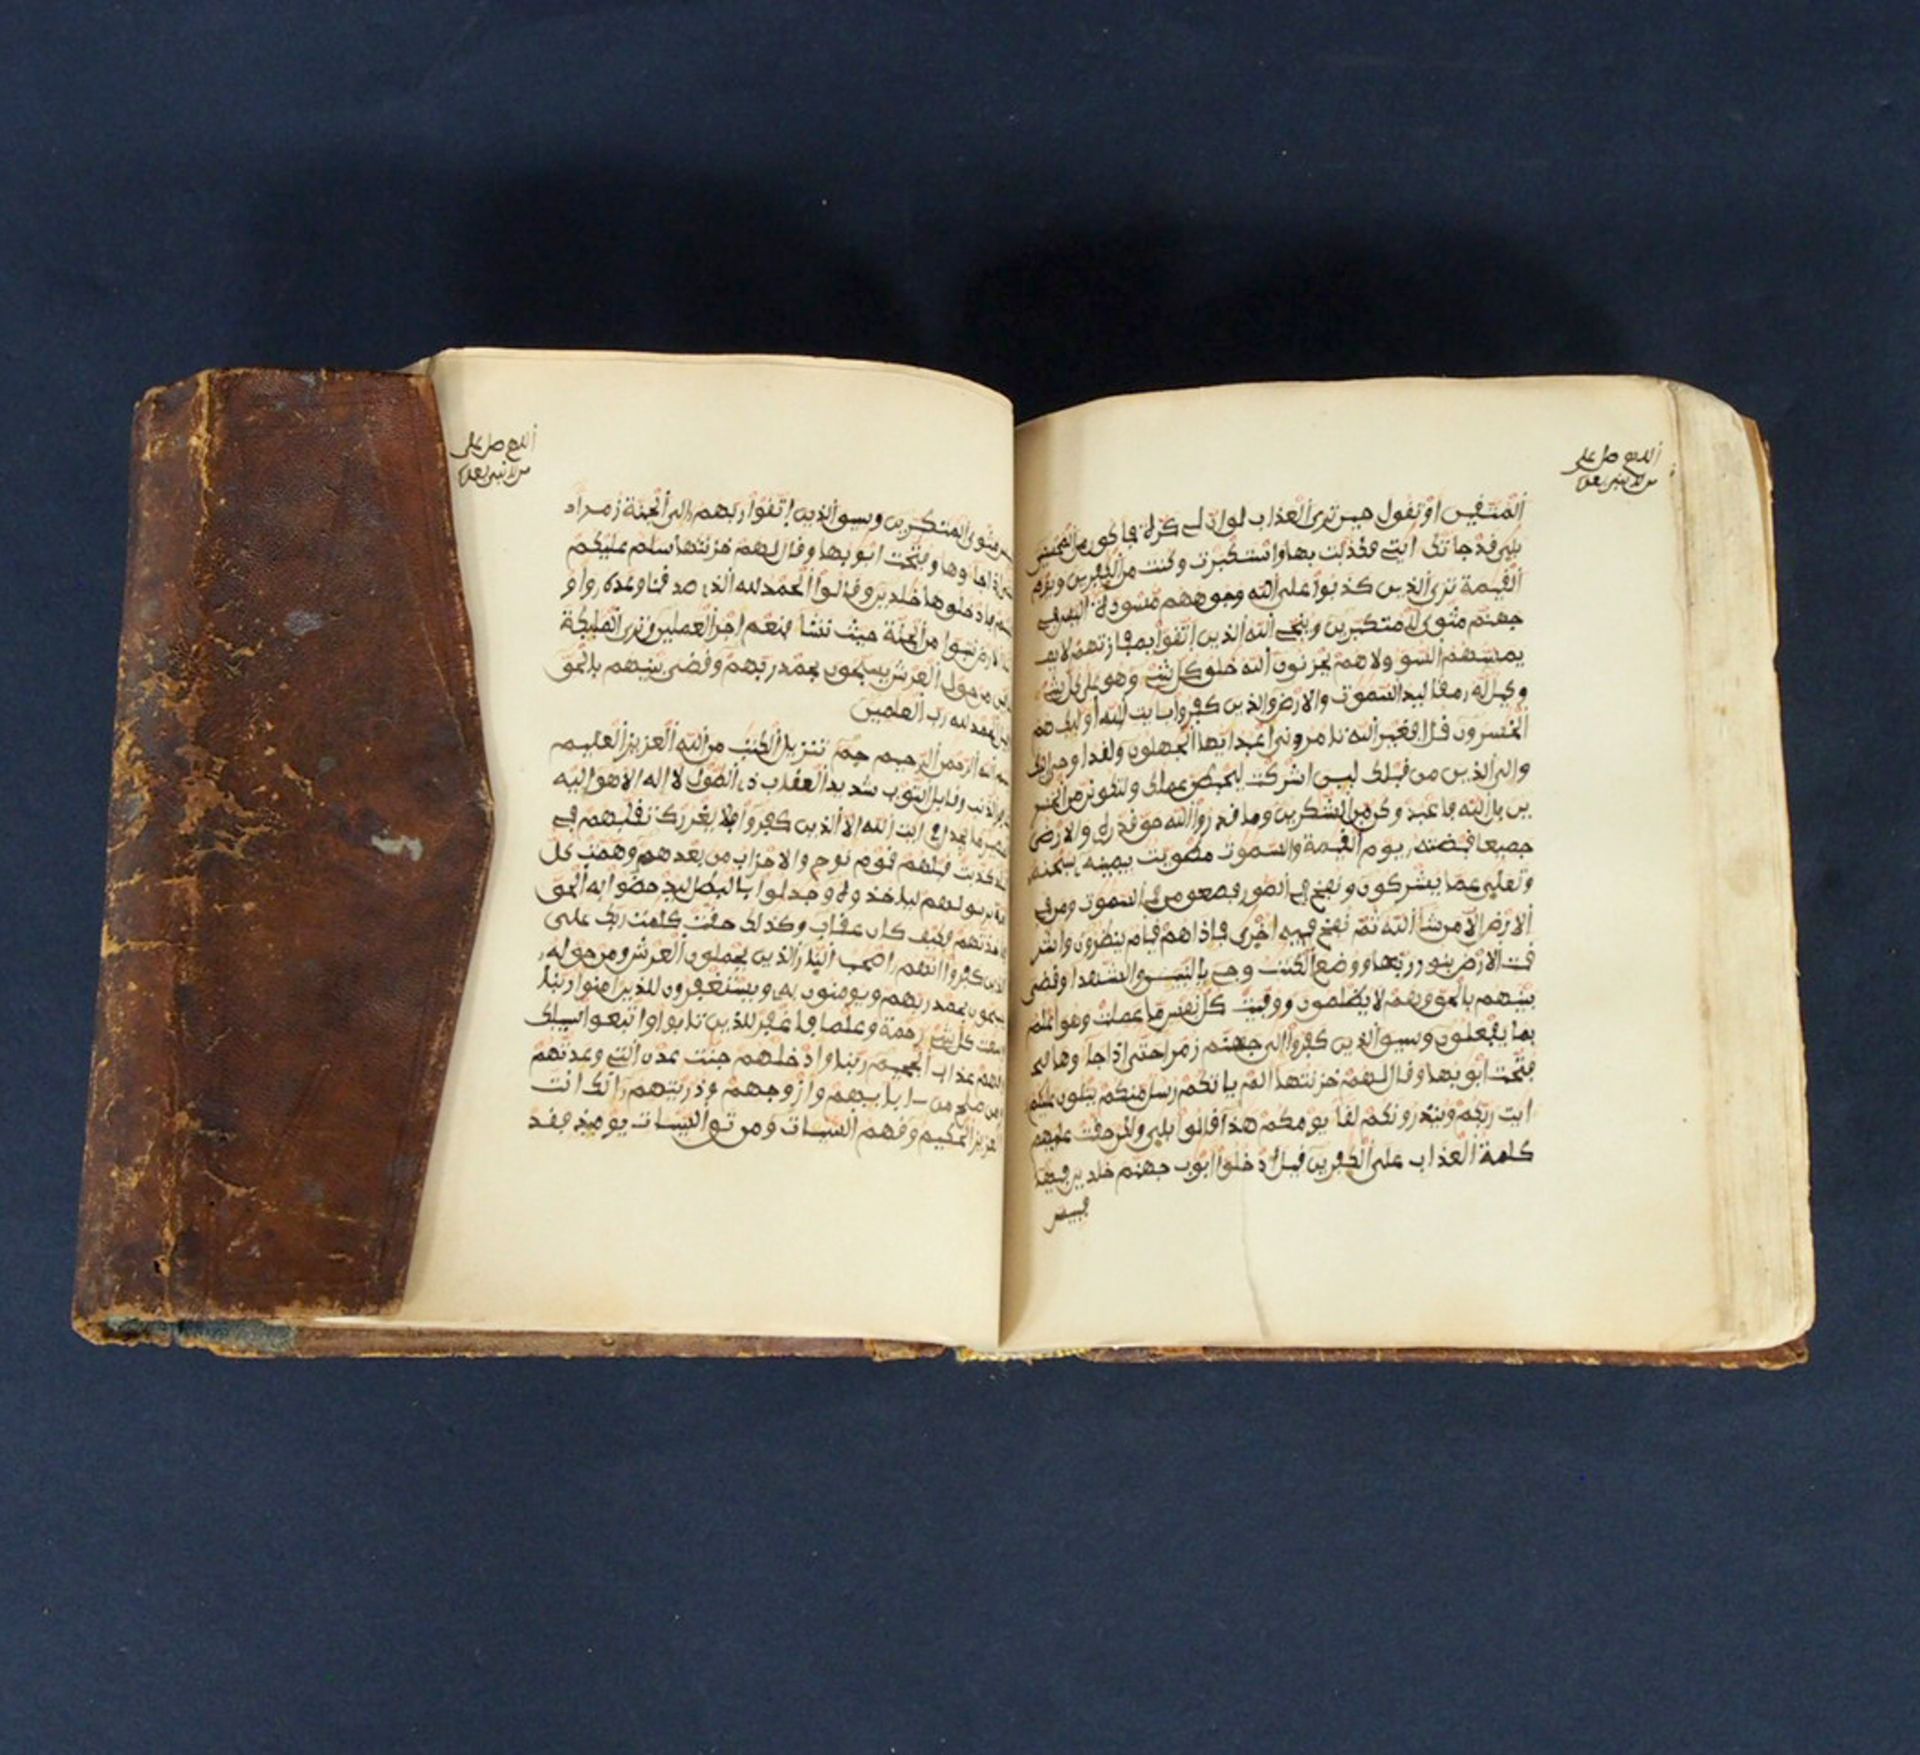 اللهم صل على
من لا نبي بعده
المتقين او تقول حين ترى العذاب لو ان لي كرة فاكون من المحسنين
بلى قد جاتك ايتي فكذبت بها واستكبرت وكنت من الكفرين ويوم
القيمة ترى الذين كذبوا على الله وجوههم مسودة اليس في
جهنم مثوى للمتكبرين وينجي الله الذين اتقوا بمفازتهم لا
يمسهم السو ولا هم يحزنون الله خلق كل شي وهو على كل شي
وكيل له مقاليد السموت والارض والذين كفروا بايت الله اوليك هم
الخسرون قل افغير الله تامروني اعبد ايها الجهلون ولقد اوحي اليك
والى الذين من قبلك لين اشركت ليحبطن عملك ولتكونن من الخسر
ين بل الله فاعبد وكن من الشكرين وما قدروا الله حق قدره والارض
جميعا قبضته يوم القيمة والسموت مطويت بيمينه سبحنه
وتعلى عما يشركون ونفخ في الصور فصعق من في السموت ومن في
الارض الا من شا الله ثم نفخ فيه اخرى فاذا هم قيام ينظرون واشر
قت الارض بنور ربها ووضع الكتب وجي بالنبيين والشهدا وقضي
بينهم بالحق وهم لا يظلمون ووفيت كل نفس ما عملت وهو اعلم
بما يفعلون وسيق الذين كفروا الى جهنم زمرا حتى اذا جاوها
فتحت ابوبها وقال لهم خزنتها الم ياتكم رسل منكم يتلون عليكم
ايت ربكم وينذرونكم لقا يومكم هذا قالوا بلى ولكن حقت
كلمة العذاب على الكفرين قيل ادخلوا ابوب جهنم خلدين فيها
فبيس
اللهم صل على
من لا نبي بعده
مثوى المتكبرين وسيق الذين اتقوا ربهم الى الجنة زمرا
اذا جاوها وفتحت ابوبها وقال لهم خزنتها سلم عليكم
فادخلوها خلدين وقالوا الحمد لله الذي صدقنا وعده واو
الارض نتبوا من الجنة حيث نشا فنعم اجر العملين وترى المليكة
من حول العرش يسبحون بحمد ربهم وقضي بينهم بالحق
الحمد لله رب العلمين
الله الرحمن الرحيم حم تنزيل الكتب من الله العزيز العليم
الذنب وقابل التوب شديد العقاب ذي الطول لا اله الا هو اليه
المصير ما يجدل في ايت الله الا الذين كفروا فلا يغررك تقلبهم في
كذبت قبلهم قوم نوح والاحزاب من بعدهم وهمت كل
برسولهم لياخذوه وجدلوا بالبطل ليدحضوا به الحق
فكيف كان عقاب وكذلك حقت كلمت ربك على
الذين كفروا انهم اصحب النار الذين يحملون العرش ومن حوله
يسبحون بحمد ربهم ويومنون به ويستغفرون للذين امنوا ربنا
وسعت كل شي رحمة وعلما فاغفر للذين تابوا واتبعوا سبيلك
وقهم عذاب الجحيم ربنا وادخلهم جنت عدن التي وعدتهم
ومن صلح من ابايهم وازوجهم وذريتهم انك انت
العزيز الحكيم وقهم السيات ومن تق السيات يوميذ فقد